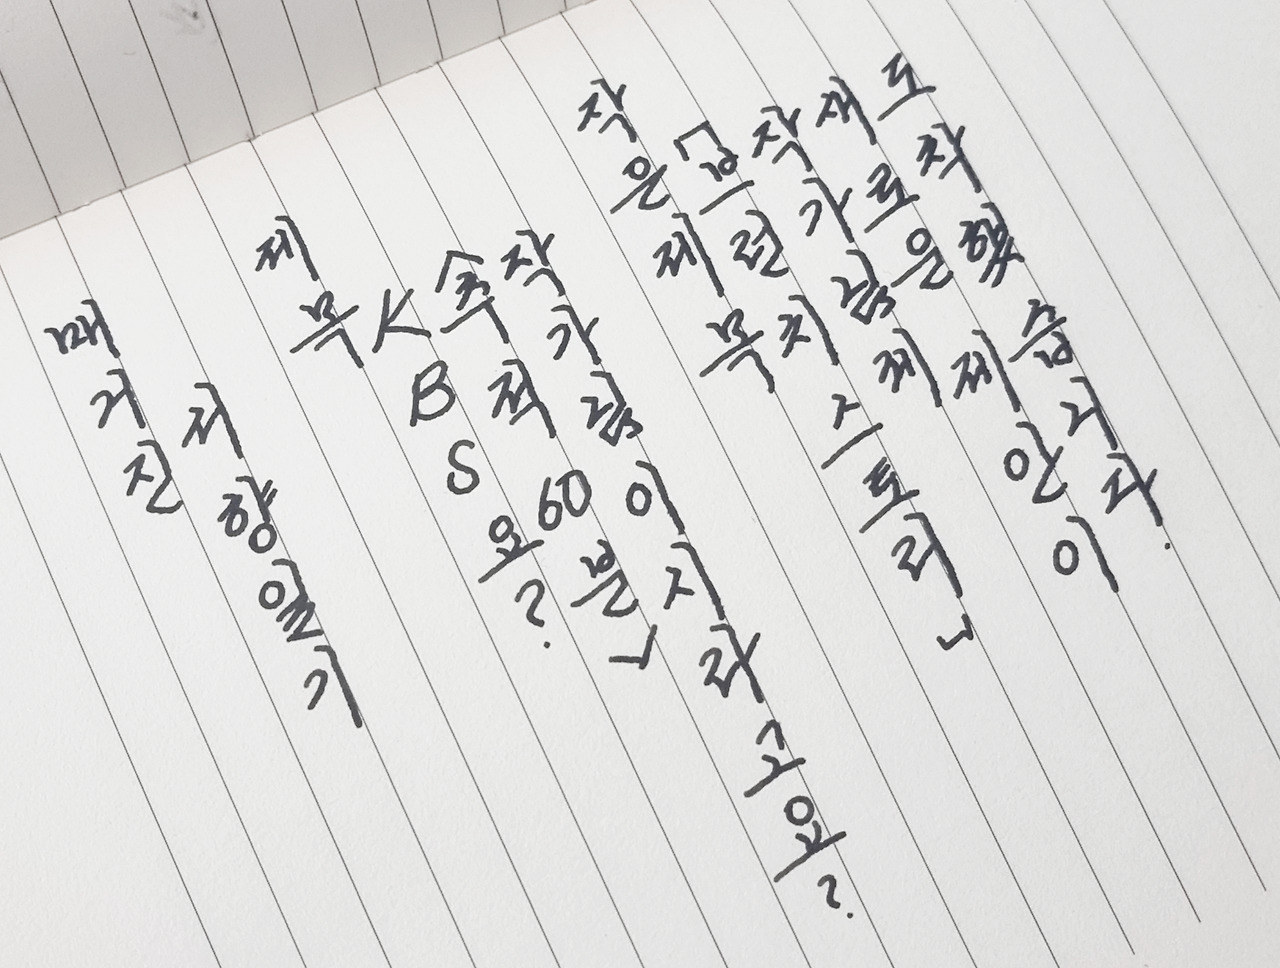 매거진
귀향일기
제목
KBS요?
「추적 60분」
작가님이시라고요?
작은제목
「브런치 스토리」
작가님께
새로운 제안이
도착했습니다.